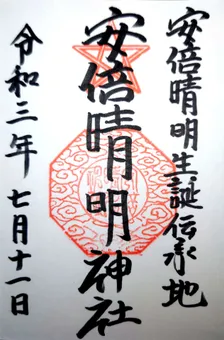 安倍晴明生誕伝承地
安倍晴明神社
令和三年七月十一日